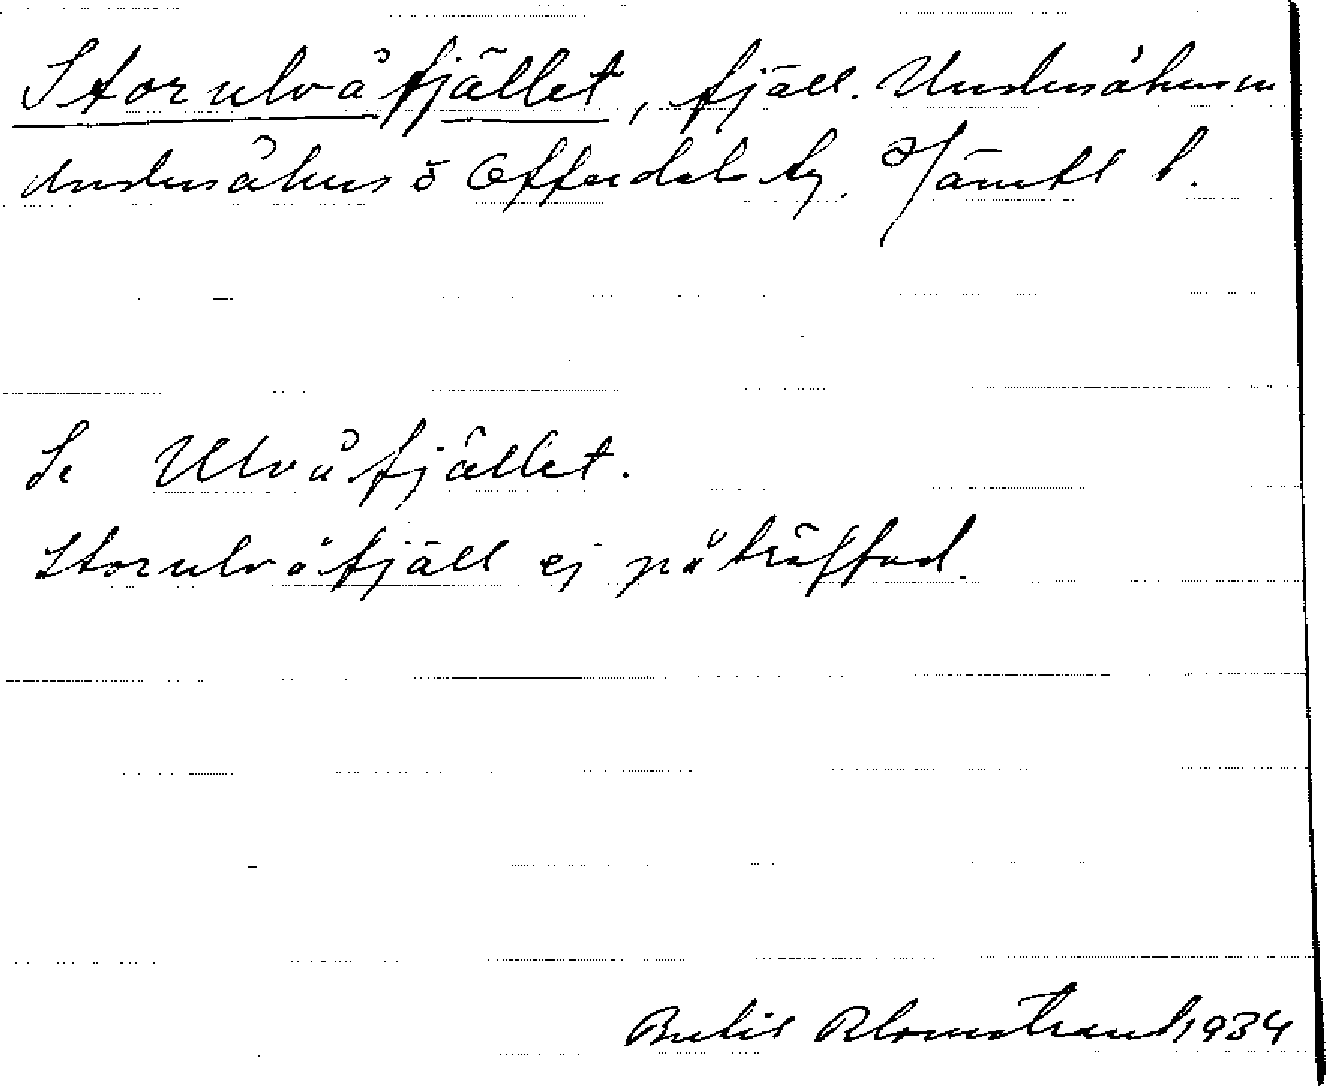 Storulvåfjället, fjäll. Undersåkers sn
Undersåkers o Offerdals tg. Jämtl l.
Se Ulvåfjället.
Storulvåfjäll ej påträffad.
Bertil Blomstrand 1934